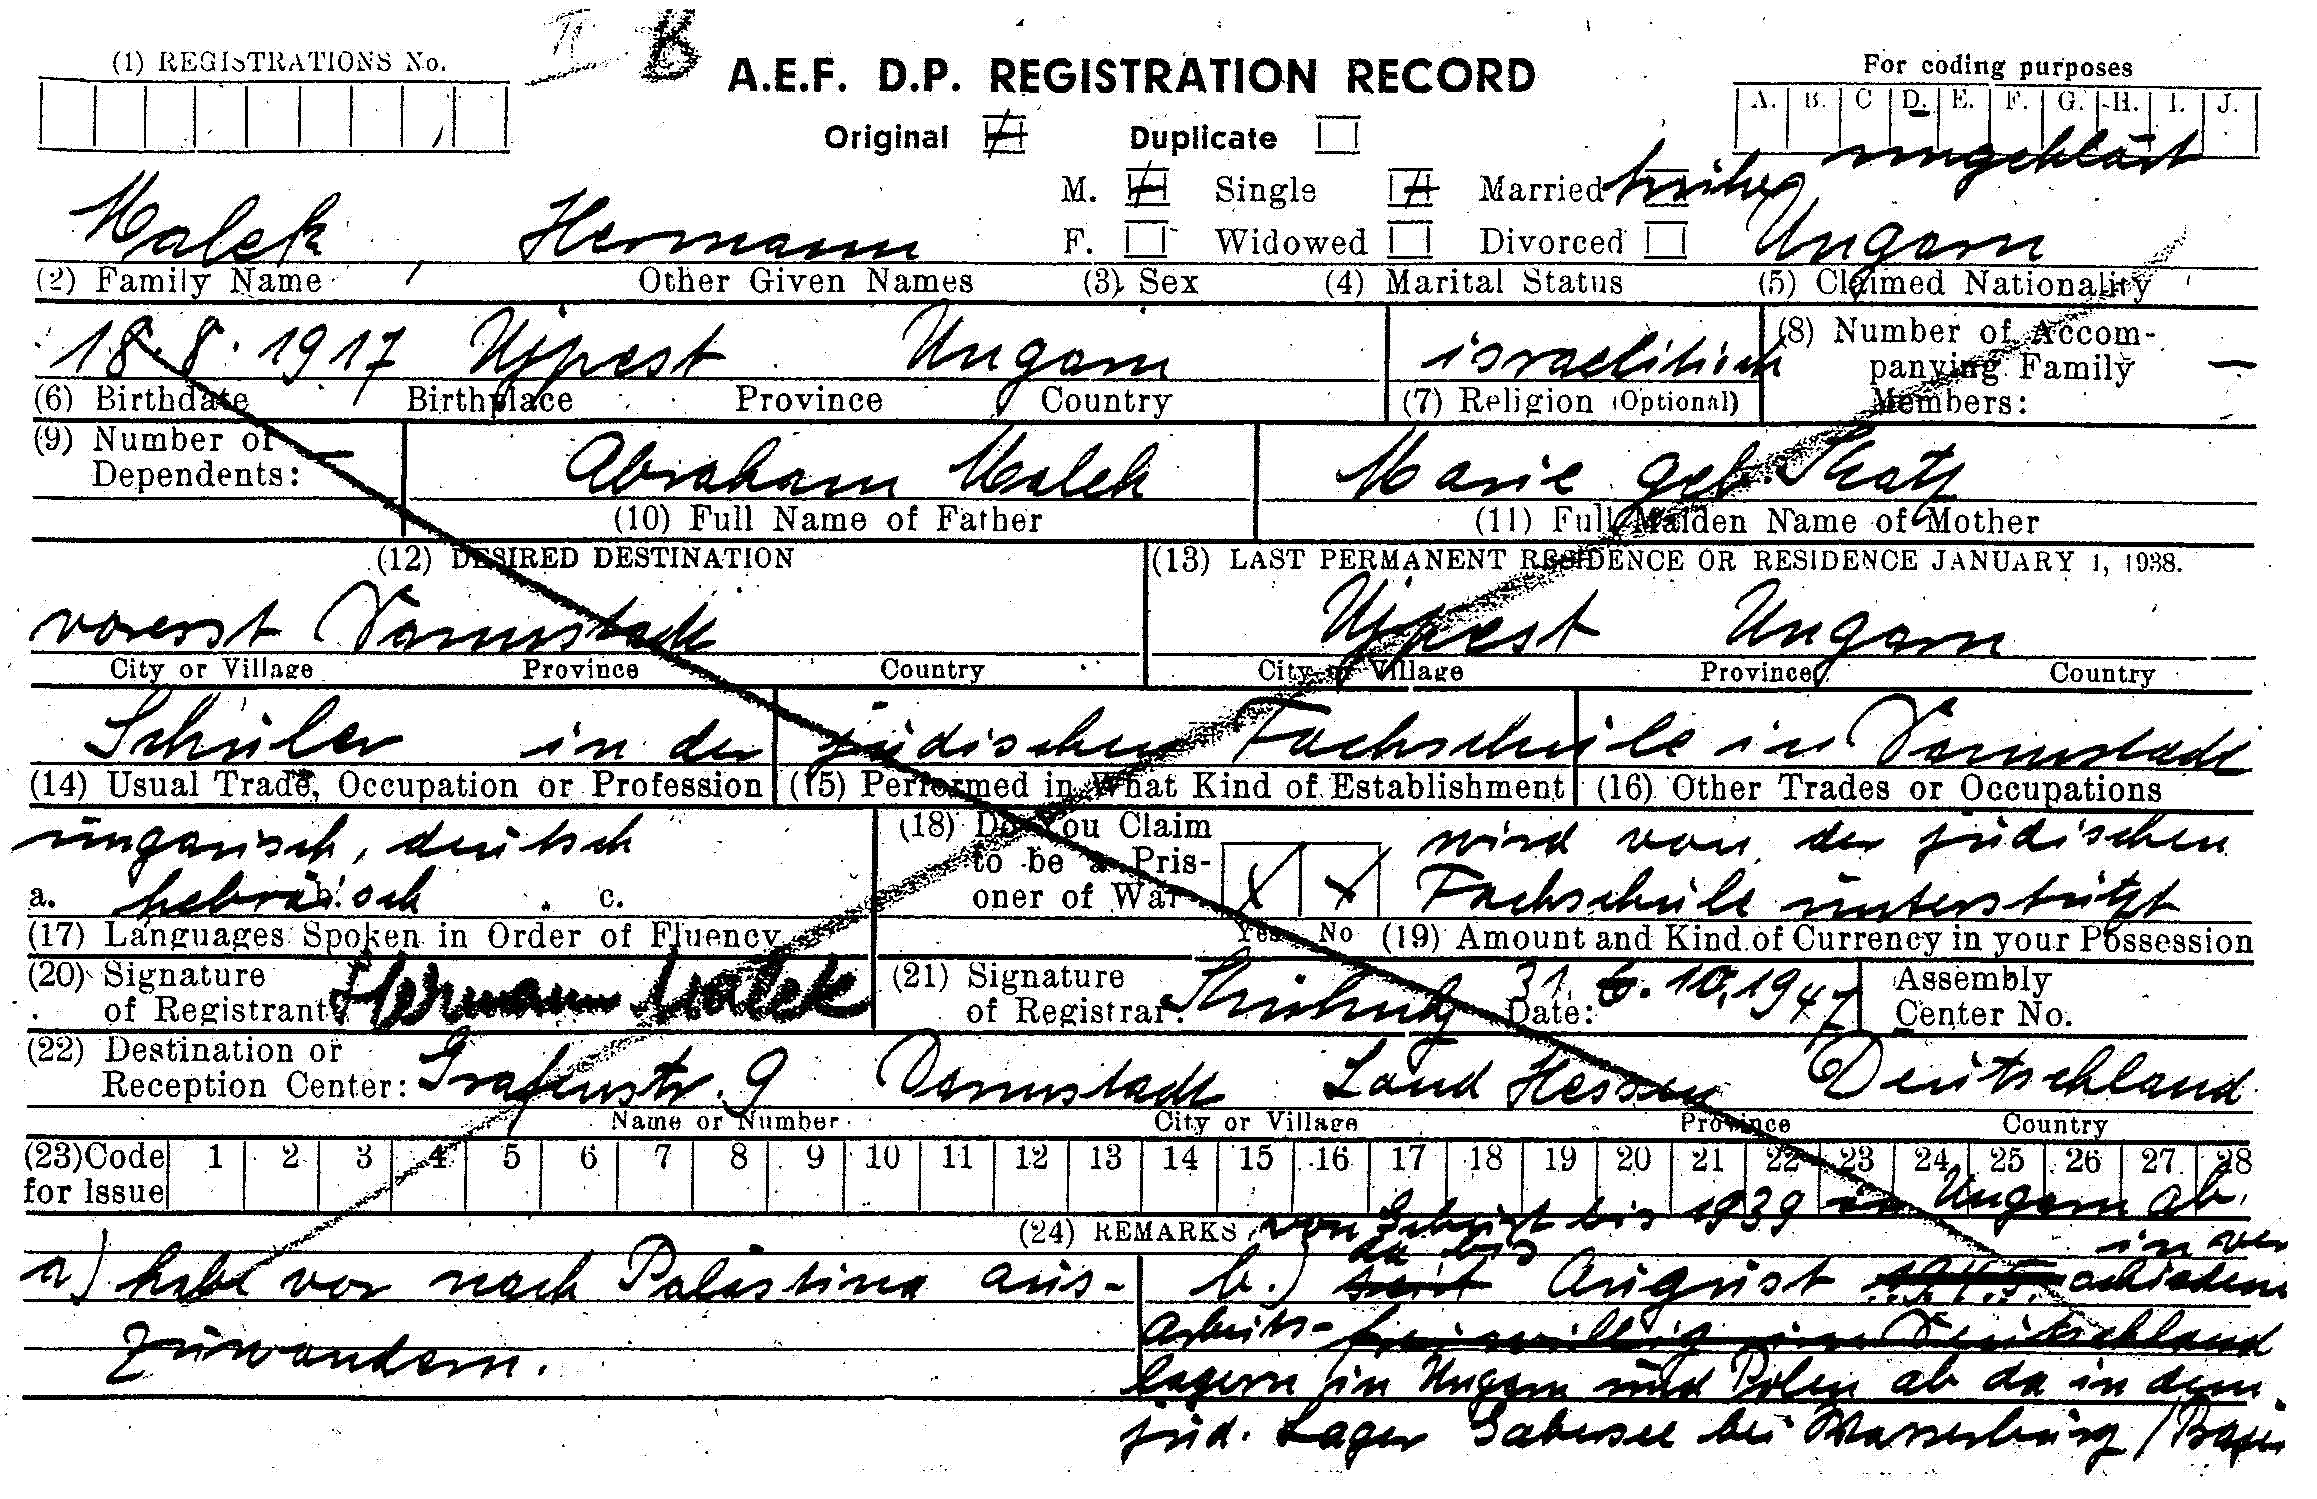 (1) REGISTRATIONS No.
II B
A.E.F. D.P. REGISTRATION RECORD
For coding purposes
A. B. C D. E. F. G. H. I. J.
Original Duplicate
ungeklärt
M. Single Married früher
Malek, Hermann F. Widowed Divorced Ungarn
(2) Family Name Other Given Names (3) Sex (4) Marital Status (5) Claimed Nationality
18.8.1917 Ujpest Ungarn israelitisch (8) Number of Accom-
panying Family —
(6) Birthdate Birthplace Province Country (7) Religion (Optional) Members:
(9) Number of
Dependents: — Abraham Malek Marie geb. Katz
(10) Full Name of Father (11) Full Maiden Name of Mother
(12) DESIRED DESTINATION (13) LAST PERMANENT RESIDENCE OR RESIDENCE JANUARY 1, 1938.
vorerst Darmstadt Ujpest Ungarn
City or Village Province Country City or Village Province Country
Schüler in der jüdischen Fachschule in Darmstadt
(14) Usual Trade, Occupation or Profession (15) Performed in What Kind of Establishment (16) Other Trades or Occupations
ungarisch, deutsch (18) Do You Claim wird von der jüdischen
to be a Pris-
a. hebräisch b. c. oner of War X X Fachschule unterstützt
(17) Languages Spoken in Order of Fluency Yes No (19) Amount and Kind of Currency in your Possession
(20) Signature (21) Signature 31. 10. 1947 Assembly
of Registrant Hermann Malek of Registrar: Date: Center No.
(22) Destination or
Reception Center: Grafenstr. 9 Darmstadt Land Hessen Deutschland
Name or Number City or Village Province Country
(23) Code 1 2 3 4 5 6 7 8 9 10 11 12 13 14 15 16 17 18 19 20 21 22 23 24 25 26 27 28
for Issue
(24) REMARKS von Geburt bis 1939 in Ungarn ab.
da bis in ver
a) habe vor nach Palästina aus- b.) seit August 1945 schiedene
zuwandern. Arbeits- freiwillig in Deutschland
lagern in Ungarn und Polen ab da in dem
jüd. Lager Gabersee bei Wasserburg / Bayer